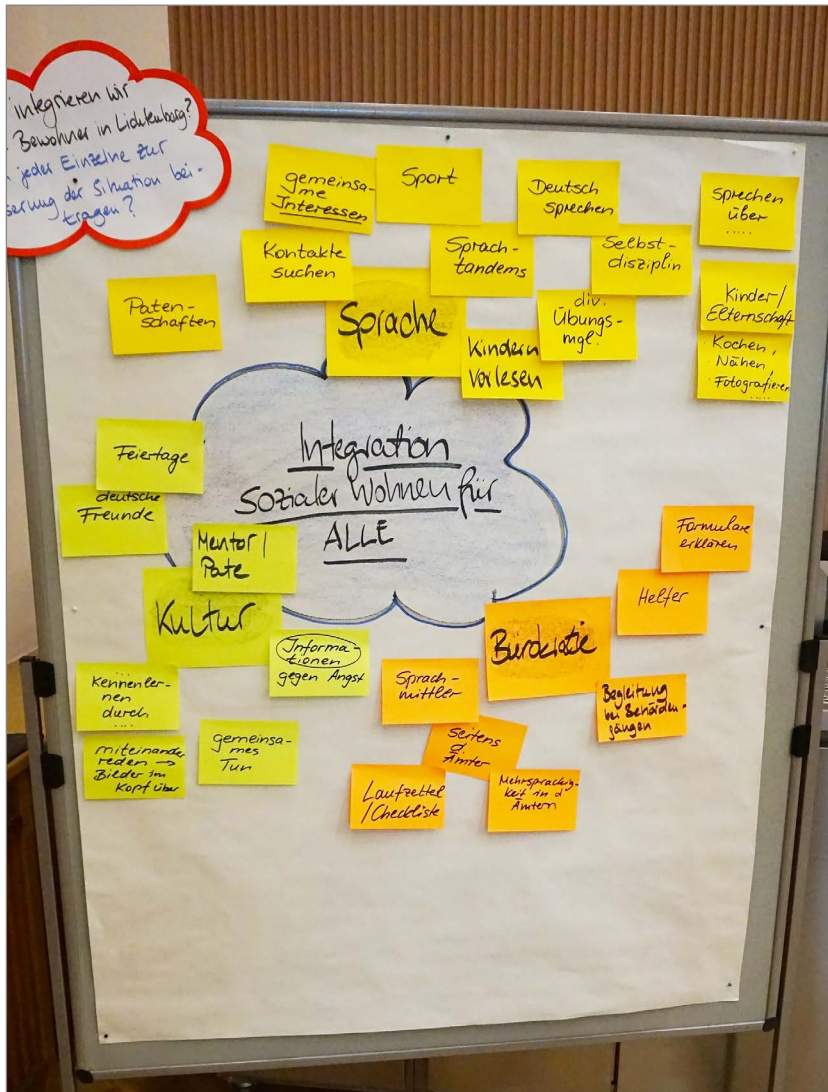 integrieren wir
Bewohner in Lichtenberg?
jeder Einzelne zur
serung der Situation bei-
tragen?
gemeinsa-
me
Interessen
Sport
Deutsch
sprechen
Sprechen
über
....
Kontakte
suchen
Sprach-
tandems
Selbst-
disziplin
Paten-
schaften
Sprache
div.
Übungs-
mgl.
Kinder/
Elternschaft
Kindern
vorlesen
Kochen,
Nähen,
Fotografieren
....
Integration
Sozialer Wohnen für
ALLE
Feiertage
deutsche
Freunde
Mentor/
Pate
Kultur
Informa-
tionen
gegen Angst
Kennenler-
nen
durch
....
miteinander
reden →
Bilder im
Kopf über
gemeinsa-
mes
Tun
Formulare
erklären
Helfer
Bürokratie
Sprach-
mittler
Begleitung
bei Behörden-
gängen
Seitens
d.
Ämter
Laufzettel
/Checkliste
Mehrsprachig-
keit in d
Ämtern